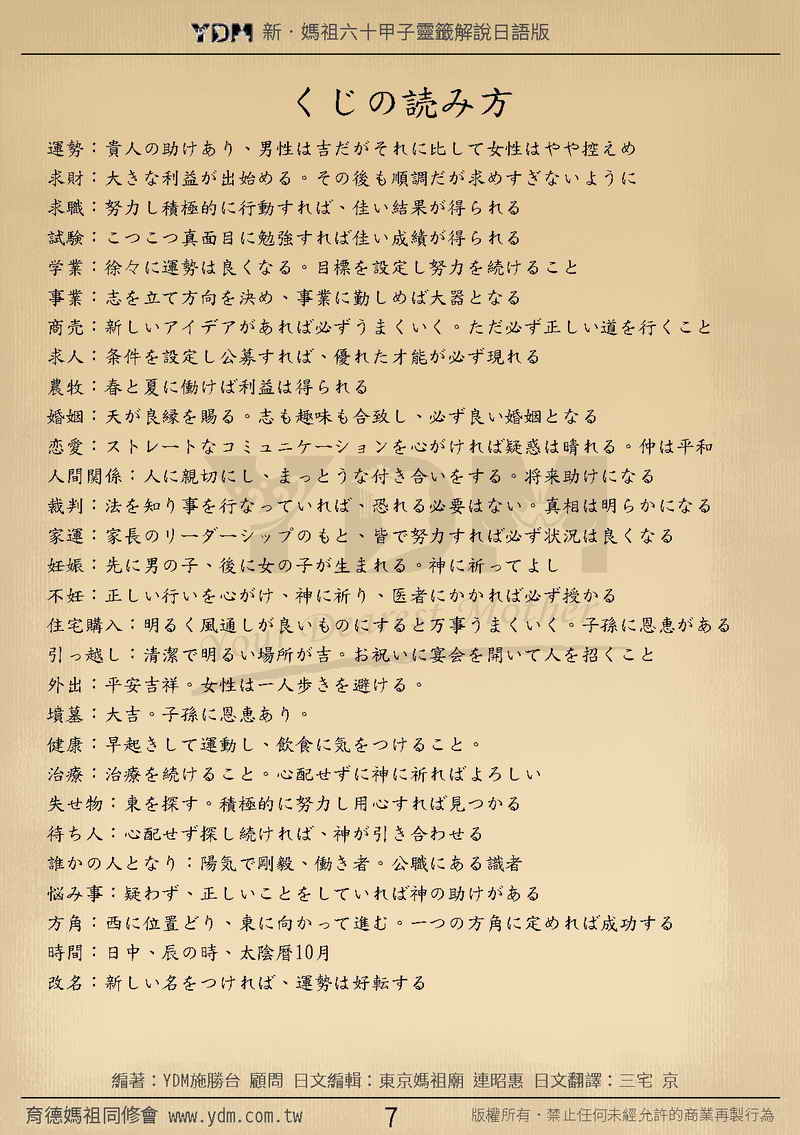 YDM 新・媽祖六十甲子靈籤解說日語版
くじの読み方
運勢：貴人の助けあり、男性は吉だがそれに比して女性はやや控えめ
求財：大きな利益が出始める。その後も順調だが求めすぎないように
求職：努力し積極的に行動すれば、佳い結果が得られる
試験：こつこつ真面目に勉強すれば佳い成績が得られる
学業：徐々に運勢は良くなる。目標を設定し努力を続けること
事業：志を立て方向を決め、事業に勤しめば大器となる
商売：新しいアイデアがあれば必ずうまくいく。ただ必ず正しい道を行くこと
求人：条件を設定し公募すれば、優れた才能が必ず現れる
農牧：春と夏に働けば利益は得られる
婚姻：天が良縁を賜る。志も趣味も合致し、必ず良い婚姻となる
恋愛：ストレートなコミュニケーションを心がければ疑惑は晴れる。仲は平和
人間関係：人に親切にし、まっとうな付き合いをする。将来助けになる
裁判：法を知り事を行なっていれば、恐れる必要はない。真相は明らかになる
家運：家長のリーダーシップのもと、皆で努力すれば必ず状況は良くなる
妊娠：先に男の子、後に女の子が生まれる。神に祈ってよし
不妊：正しい行いを心がけ、神に祈り、医者にかかれば必ず授かる
住宅購入：明るく風通しが良いものにすると万事うまくいく。子孫に恩恵がある
引っ越し：清潔で明るい場所が吉。お祝いに宴会を開いて人を招くこと
外出：平安吉祥。女性は一人歩きを避ける。
墳墓：大吉。子孫に恩恵あり。
健康：早起きして運動し、飲食に気をつけること。
治療：治療を続けること。心配せずに神に祈ればよろしい
失せ物：東を探す。積極的に努力し用心すれば見つかる
待ち人：心配せず探し続ければ、神が引き合わせる
誰かの人となり：陽気で剛毅、働き者。公職にある識者
悩み事：疑わず、正しいことをしていれば神の助けがある
方角：西に位置どり、東に向かって進む。一つの方角に定めれば成功する
時間：日中、辰の時、太陰暦10月
改名：新しい名をつければ、運勢は好転する
YDM
Your Dearest Mother
編著：YDM施勝台 顧問 日文編輯：東京媽祖廟 連昭惠 日文翻譯：三宅 京
育德媽祖同修會 www.ydm.com.tw 7 版權所有・禁止任何未經允許的商業再製行為